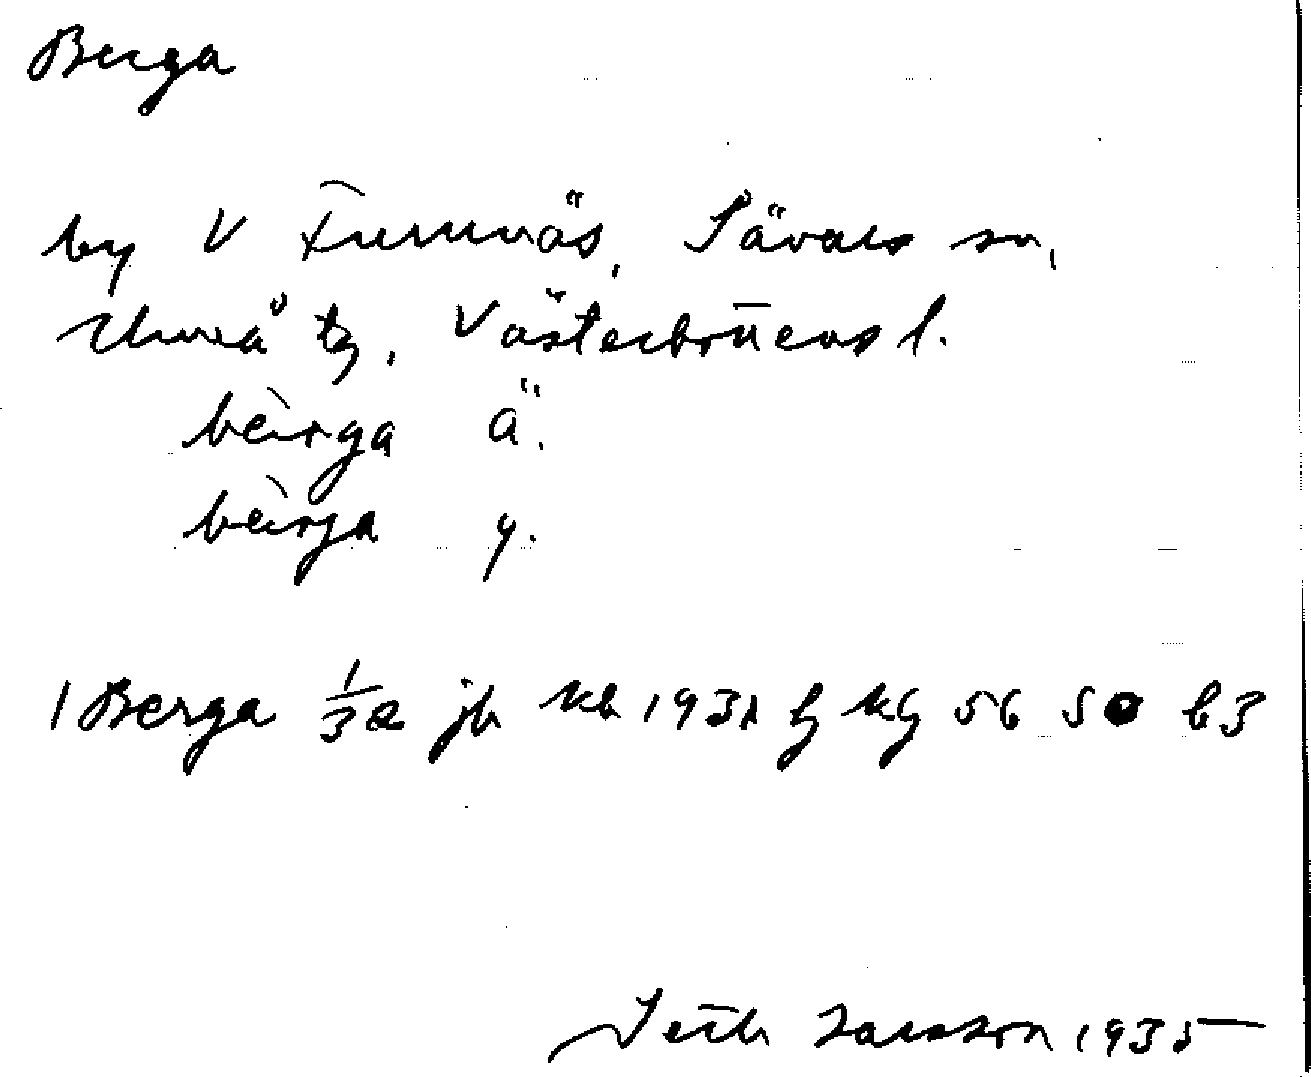 Berga
by V Furunäs, Sävars sn,
Umeå tg, Västerbottens l.
bèrga ä.
bèrja y.
1 Berga jb kb 1931 56 50 b3
Seth Larsson 1935